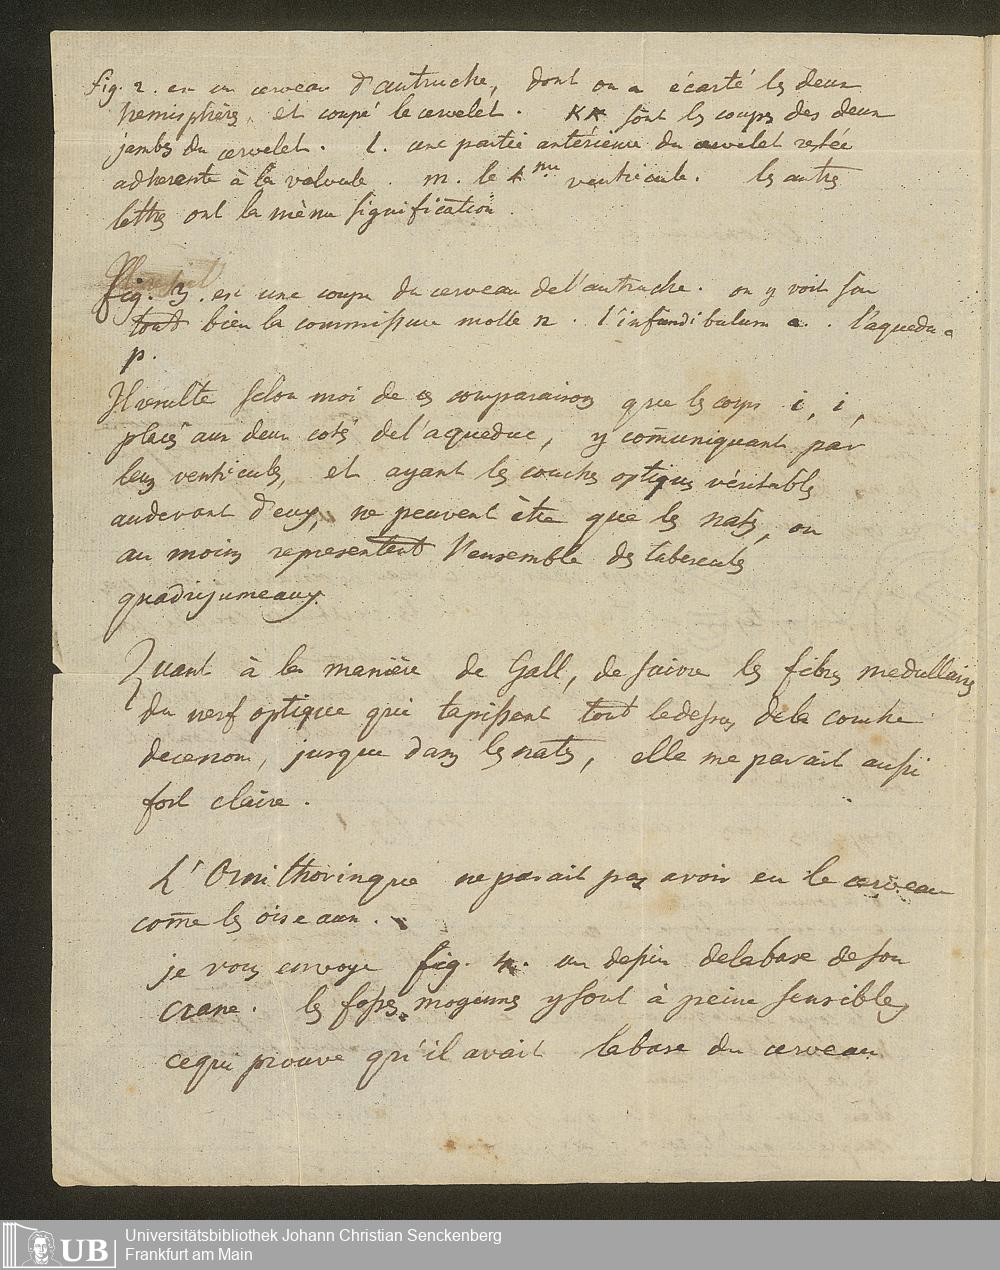 fig. 2. est un cerveau d'autruche, dont on a écarté les deux
hemisphères, et coupé le cervelet. KK sont les coupes des deux
jambes du cervelet. l. une partie antérieure du cervelet restée
adherente à la valvule. m. le 4me ventricule. les autres
lettres ont la même signification.
fig. 3. est une coupe du cerveau de l'autruche. on y voit fort
bien la commissure molle n. l'infundibulum o. l'aqueduc
p.
Il resulte selon moi de ces comparaisons que les corps i, i,
placés aux deux cotés de l'aqueduc, y com̄uniquant par
leurs ventricules, et ayant les couches optiques véritables
audevant d'eux, ne peuvent être que les nates, ou
au moins representent l'ensemble des tubercules
quadrijumeaux.
Quant à la manière de Gall, de suivre les fibres medullaires
du nerf optique qui tapissent tout ledessus dela couche
decenom, jusque dans les nates, elle me parait aussi
fort claire.
L'Ornithorinque ne parait pas avoir eu le cerveau
com̄e les oiseaux.
je vous envoye fig. 4. un dessin delabase deson
crane. les fosses moyennes ysont à peine sensibles
cequi prouve qu'il avait labase du cerveau
UB
Universitätsbibliothek Johann Christian Senckenberg
Frankfurt am Main